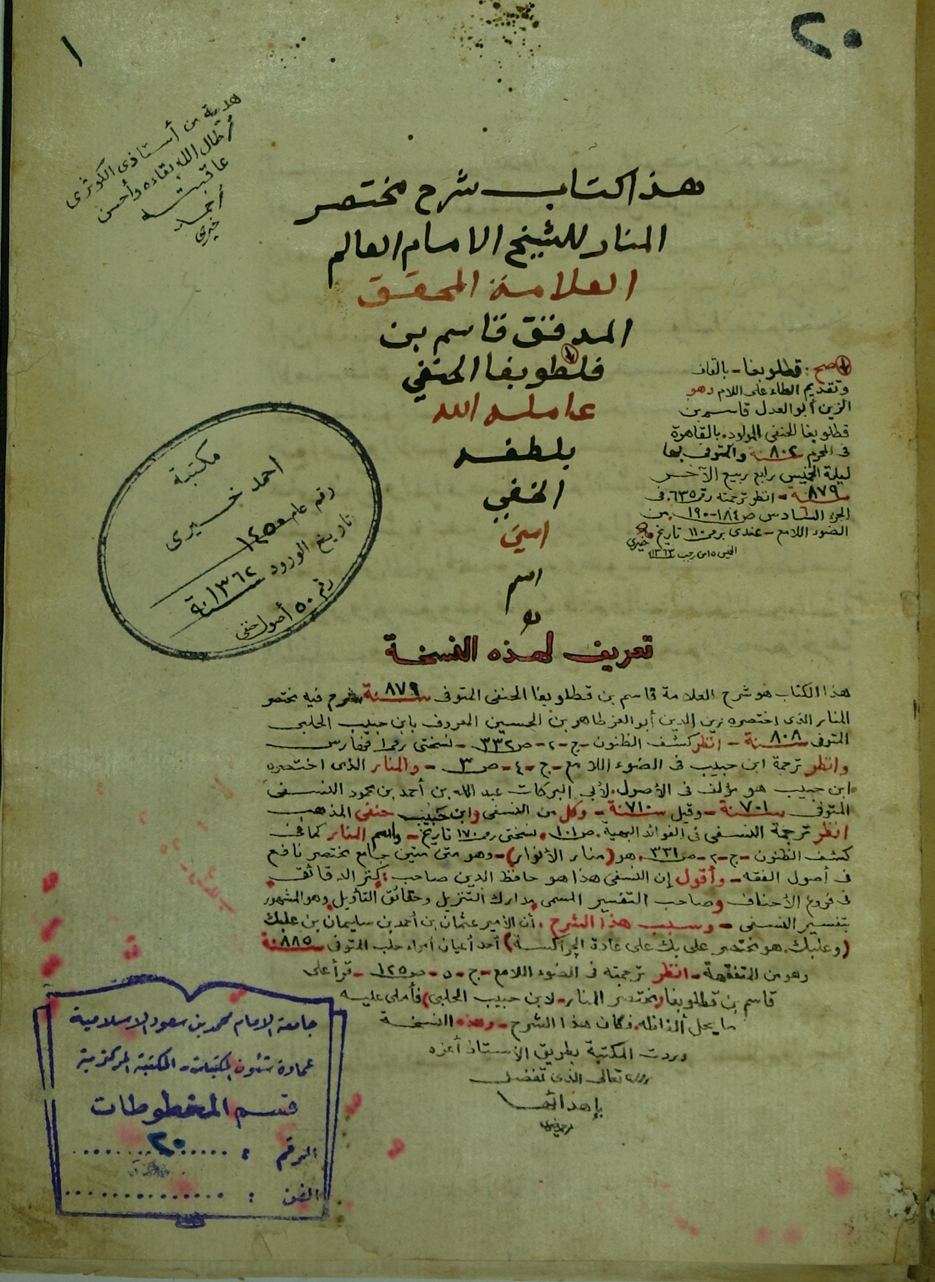 ٢٠
١
هدية من أستاذى الكوثرى
أطال الله بقاءه وأحسن
عاقبته
أحمد
خيرى
هذا كتاب شرح مختصر
المنار للشيخ الامام العالم
العلامة المحقق
المدقق قاسم بن
قلطوبغا الحنفي
عامله الله
بلطفه
الخفي
امين
صح: قطلوبغا - بالقاف
وتقديم الطاء على اللام وهو
الزين أبو العدل قاسم بن
قطلوبغا الحنفى المولود بالقاهرة
فى المحرم سنة ٨٠٢ والمتوفى بها
ليلة الخميس رابع ربيع الآخر
سنة ٨٧٩ - انظر ترجمته رقم ٦٣٥ فى
الجزء السادس ص ١٨٤-١٩٠ من
الضوء اللامع - عندى برقم ١١٠ تاريخ
خيرى
مكتبة
احمد خيرى
رقم عام ١٤٥٠
تاريخ الورود سنة ١٣٦٢
رقم ٥٠ أصول حنفى
تعريف لهذه النسخة
هذا الكتاب هو شرح العلامة قاسم بن قطلوبغا الحنفى المتوفى سنة ٨٧٩ شرح فيه مختصر
المنار الذى اختصره زين الدين أبو العز طاهر بن الحسين المعروف بابن حبيب الحلبى
المتوفى سنة ٨٠٨ - انظر كشف الظنون - ج - ٢ - ص ٣٣٢ - نسختى رقم ١ فهارس
وانظر ترجمة ابن حبيب فى الضوء اللامع - ج - ٤ - ص ٣ - والمنار الذى اختصره
ابن حبيب هو مؤلف فى الأصول لأبى البركات عبد الله بن أحمد بن محمود النسفى
المتوفى سنة ٧٠١ - وقيل سنة ٧١٠ - وكل من النسفى وابن حبيب حنفى المذهب
انظر ترجمة النسفى فى الفوائد البهية ص ١٠١ نسختى رقم ١٧٠ تاريخ - واسم المنار كما فى
كشف الظنون - ج - ٢ - ص ٣٣١ هو (منار الأنوار) - وهو متن متين جامع مختصر نافع
فى أصول الفقه - وأقول إن النسفى هذا هو حافظ الدين صاحب كنز الدقائق
فى فروع الأحناف وصاحب التفسير المسمى مدارك التنزيل وحقائق التأويل وهو المشهور
بتفسير النسفى - وسبب هذا الشرح أن الأمير عثمان بن أحمد بن سليمان بن علبك
(وعلبك هو مختصر على بك على عادة الجراكسة) أحد أعيان أمراء حلب المتوفى سنة ٨٨٥
وهو من المتفقهة - انظر ترجمته فى الضوء اللامع - ج - ٥ - ص ١٢٥ - قرأ على
قاسم بن قطلوبغا (مختصر المنار - لابن حبيب الحلبى) فأملى عليه
ما يحل ألفاظه فكان هذا الشرح - وهذه النسخة
وردت المكتبة بطريق الأستاذ أعزه
الله تعالى الذى تفضل
بإهدائها
جامعة الامام محمد بن سعود الاسلامية
عمادة شئون المكتبات - المكتبة المركزية
قسم المخطوطات
الرقم : ٢٠
الفن :